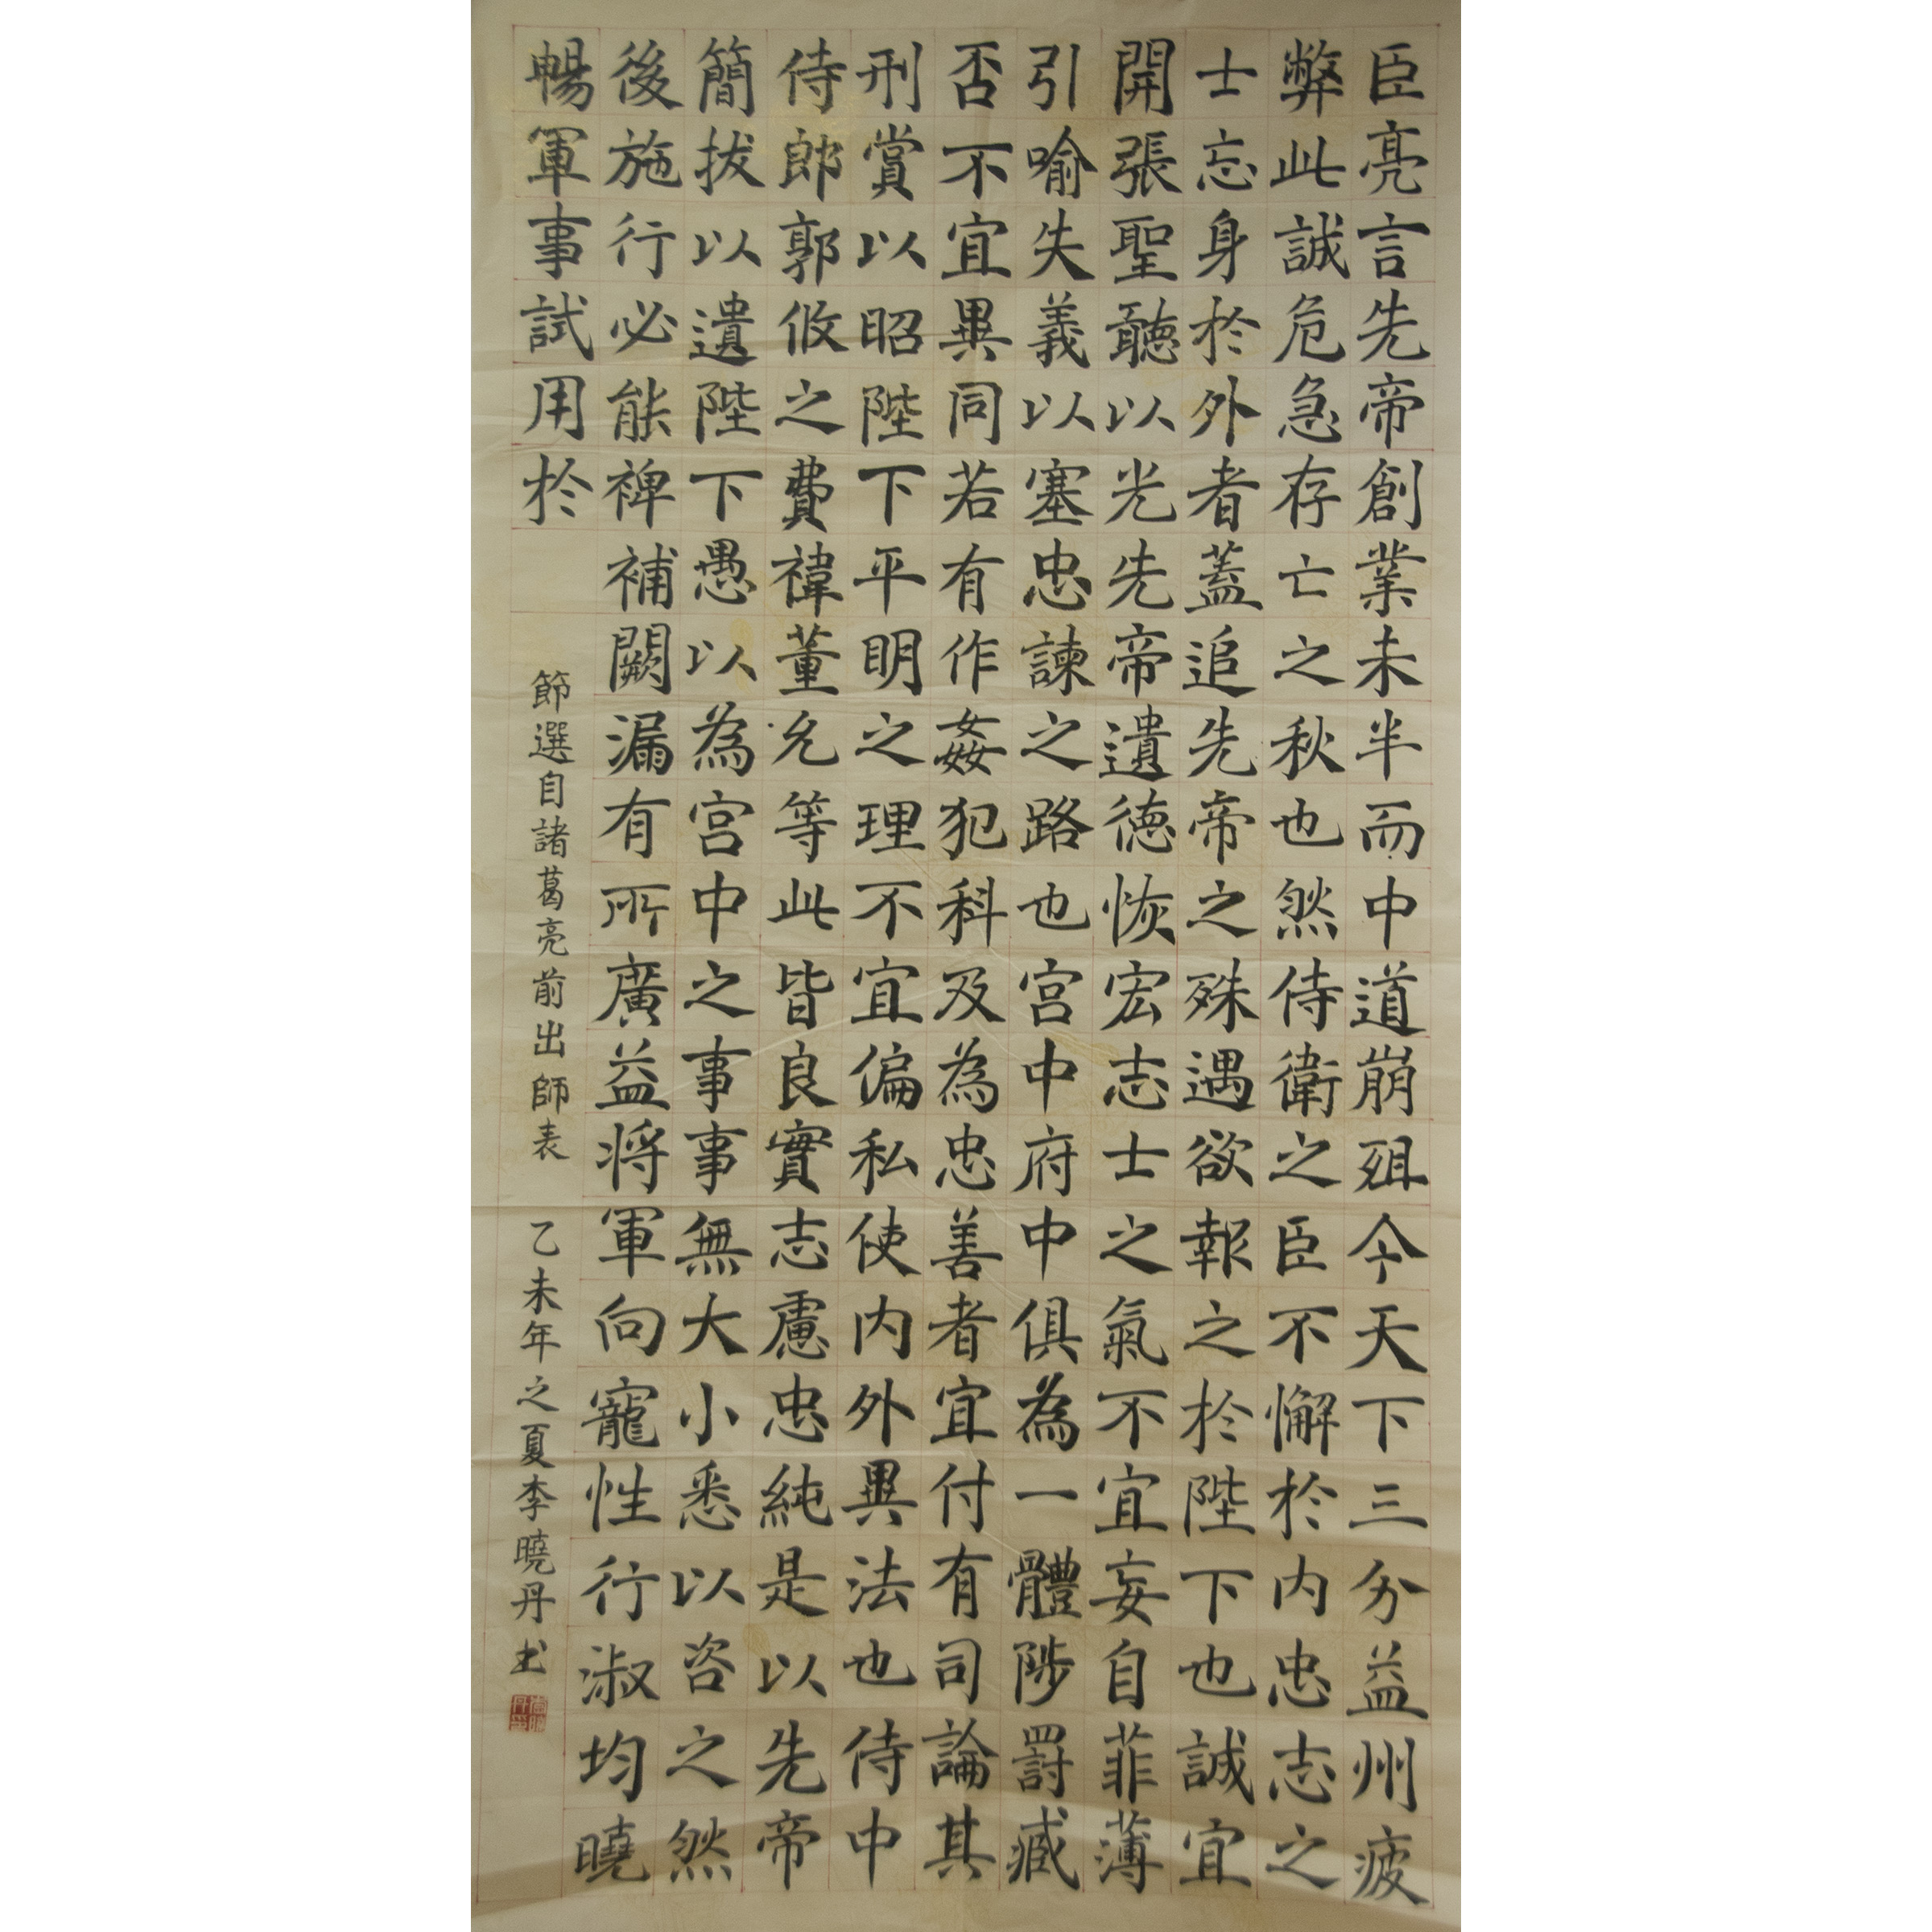 臣亮言先帝創業未半而中道崩殂今天下三分益州疲
弊此誠危急存亡之秋也然侍衛之臣不懈於内忠志之
士忘身於外者蓋追先帝之殊遇欲報之於陛下也誠宜
開張聖聽以光先帝遺德恢宏志士之氣不宜妄自菲薄
引喻失義以塞忠諫之路也宫中府中俱為一體陟罰臧
否不宜異同若有作姦犯科及為忠善者宜付有司論其
刑賞以昭陛下平明之理不宜偏私使内外異法也侍中
侍郎郭攸之費禕董允等此皆良實志慮忠純是以先帝
簡拔以遺陛下愚以為宫中之事事無大小悉以咨之然
後施行必能裨補闕漏有所廣益将軍向寵性行淑均曉
暢軍事試用於
節選自諸葛亮前出師表 乙未年之夏李曉丹书